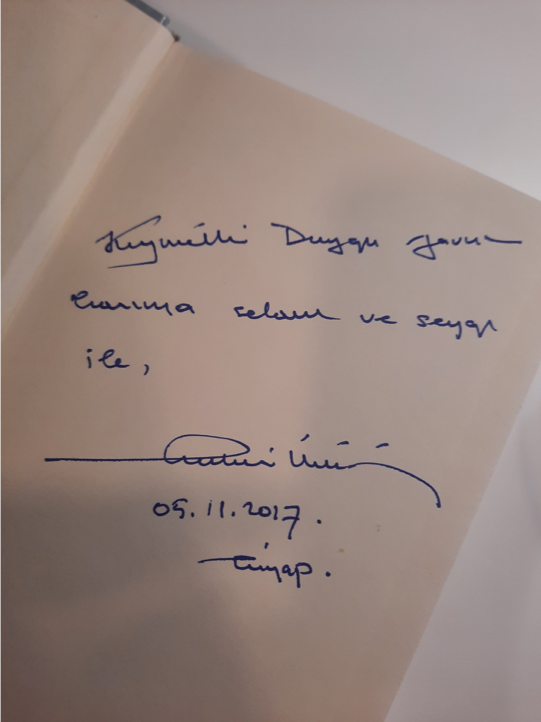 Kıymetli Duygu Yavuz
hanıma selam ve sevgi
ile,
05.11.2017.
Tüyap.